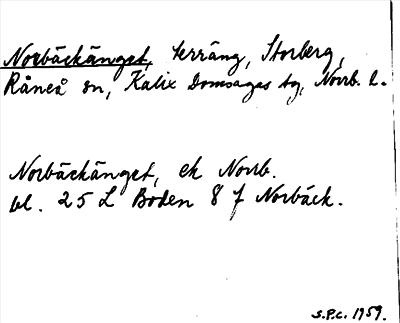 Norbäckänget, terräng, Storberg,
Råneå sn, Kalix Domsagas tg, Norrb. l.
Norbäckänget, ek Norrb.
bl. 25 L Boden 8 f Norbäck.
S.P.C. 1959.